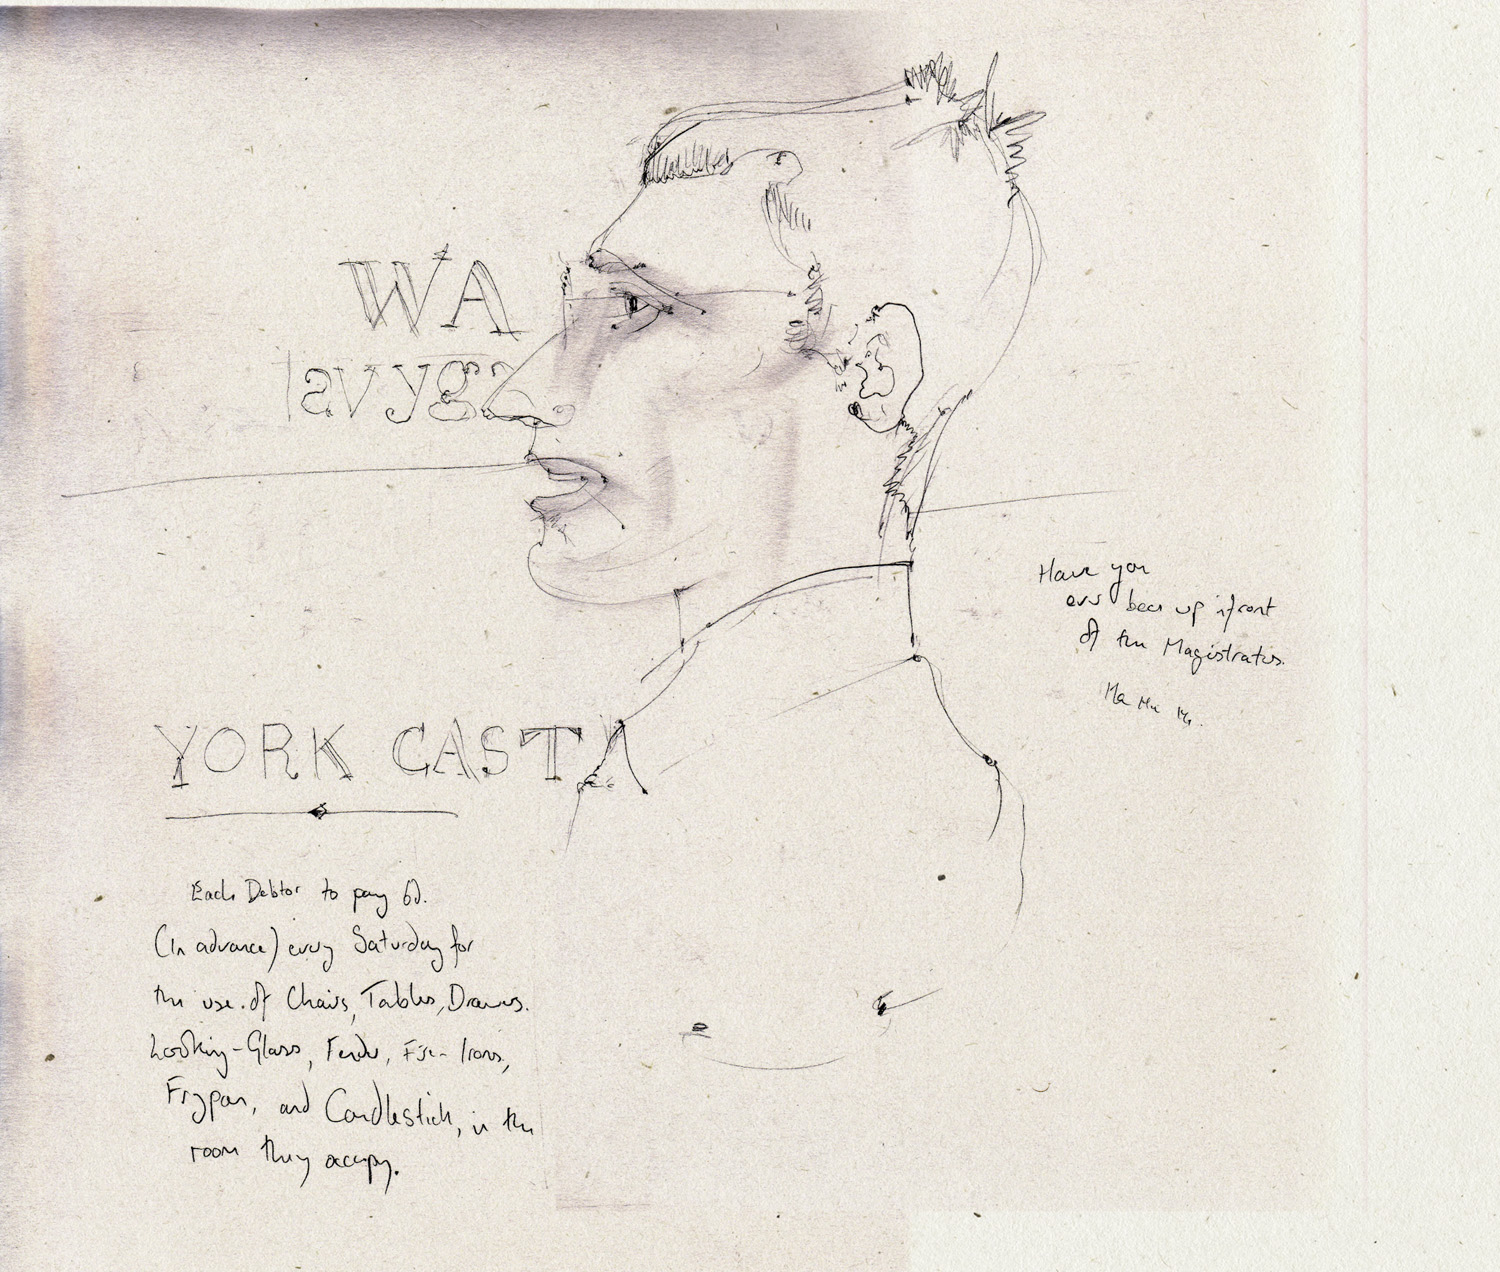 WA
lavyg
YORK CAST
Each Debtor to pay 6d.
(In advance) every Saturday for
the use of Chairs, Tables, Drawers.
Looking-Glass, Fender, Fire-Irons,
Frypan, and Candlestick, in the
room they occupy.
Have you
ever been up infront
of the Magistrates.
Ha Ha Ha.